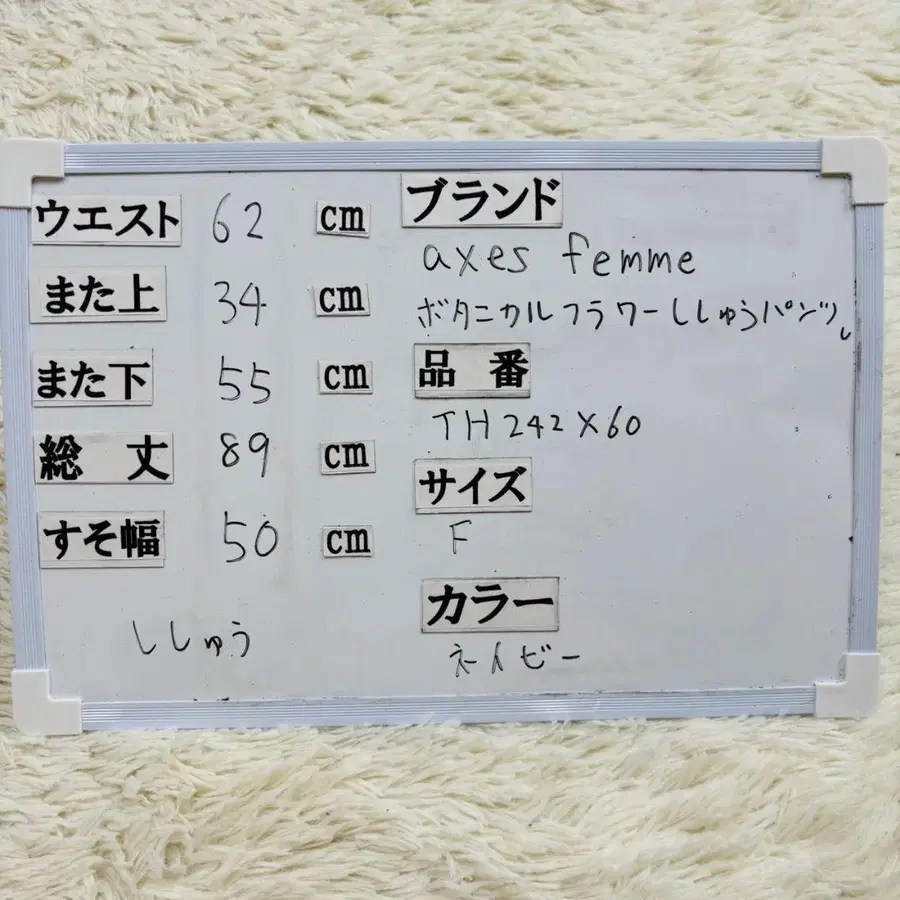 ウエスト 62 cm
また上 34 cm
また下 55 cm
総丈 89 cm
すそ幅 50 cm
ししゅう
ブランド
axes femme
ボタニカルフラワーししゅうパンツ
品番
TH242X60
サイズ
F
カラー
ネイビー